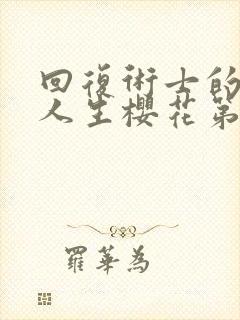 回復術士的
人生櫻花第
羅華為